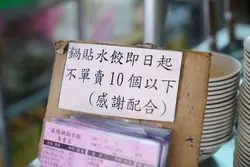 鍋貼水餃即日起
不單賣10個以下
(感謝配合)